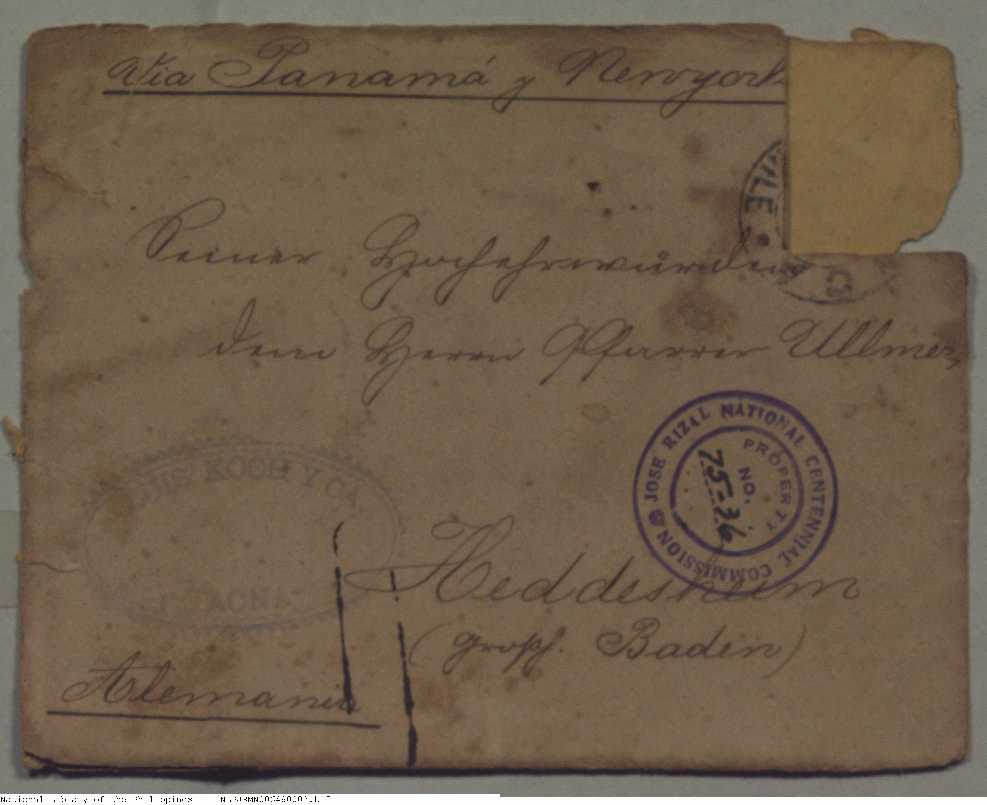 Via Panamá y Newyork
Seiner Hochehrwürden
dem Herrn Pfarrer Ullmer,
JOSE RIZAL NATIONAL CENTENNIAL COMMISSION
PROPERTY
NO.
75=36
KOCH Y CA
TACNA
Heddesheim
(Großh. Baden)
Alemania
National Library of the Philippines